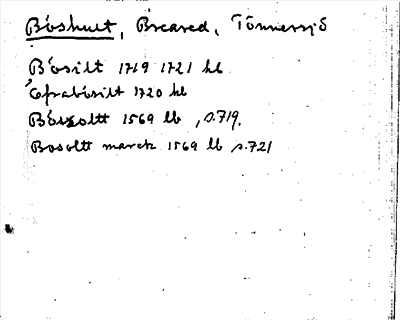 Böshult, Breared, Tönnersjö
Bösilt 1719 1721 hl
Öfrabösilt 1720 hl
Böszoltt 1569 lb, s.719.
Bosoltt marck 1569 lb s.721